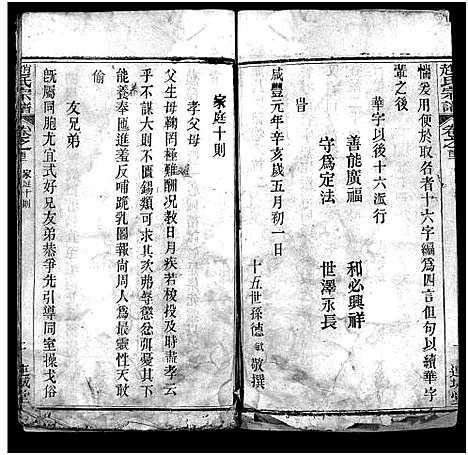 趙氏宗譜
卷之首
惴爰用便於取名者十六字編爲四言但句以續華字
輩之後
華字以後十六派行
善能廣福 和必興祥
守爲定法 世澤永長
旹
咸豐元年辛亥歲五月初一日
十五世孫德 敬撰
家庭十則
孝父母
父生母鞠罔極難酬况教日月疾若梭投及時盡孝云
乎不誠大則不匱錫類可求其次弟擧愆忿弭憂其下
能養奉匜進羞反哺跪乳圖報尚周人爲最靈性天敢
偷
友兄弟
旣屬同胞尤宜式好兄友弟恭爭先引導同室操戈俗
趙氏宗譜
卷之首
家庭十則